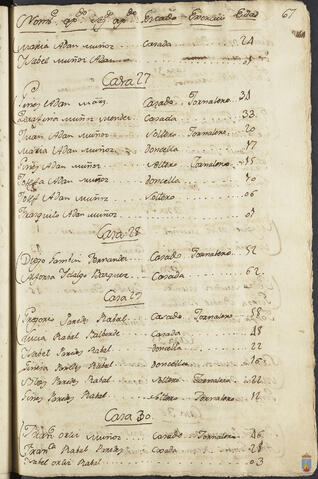 Nom.e ap.do seg.do ap.do Estado Exercicio Edad 67
Maria Adan Muñoz Casada 24
Isabel Muñoz Adan
Casa 27
Gines Adan Casado Jornalero
Serafina Muñoz Mendez Casada 33
Juan Adan Muñoz Soltero Jornalero 20
Maria Adan Muñoz Doncella 17
Gines Adan Muñoz Soltero Jornalero 15
Josefa Adan Muñoz Doncella 10
Josef Adan Muñoz Soltero 06
Adan Muñoz
Casa 28
Diego Fernandez Casado Jornalero 52
Antonia Hidalgo Bazquez Casada 62
Casa 29
Gregorio Paredes Rabal Casado Jornalero 58
Rabal Balberde Casada 48
Isabel Paredes Rabal Doncella 22
Paredes Rabal Doncella 16
Paredes Rabal Soltero Jornalero 22
Gines Paredes Rabal Soltero Jornalero 12
Casa 30
Fran.co Muñoz Casado Jornalero 26
Fran.ca Rabal Paredes Casada
Isabel Rabal 03